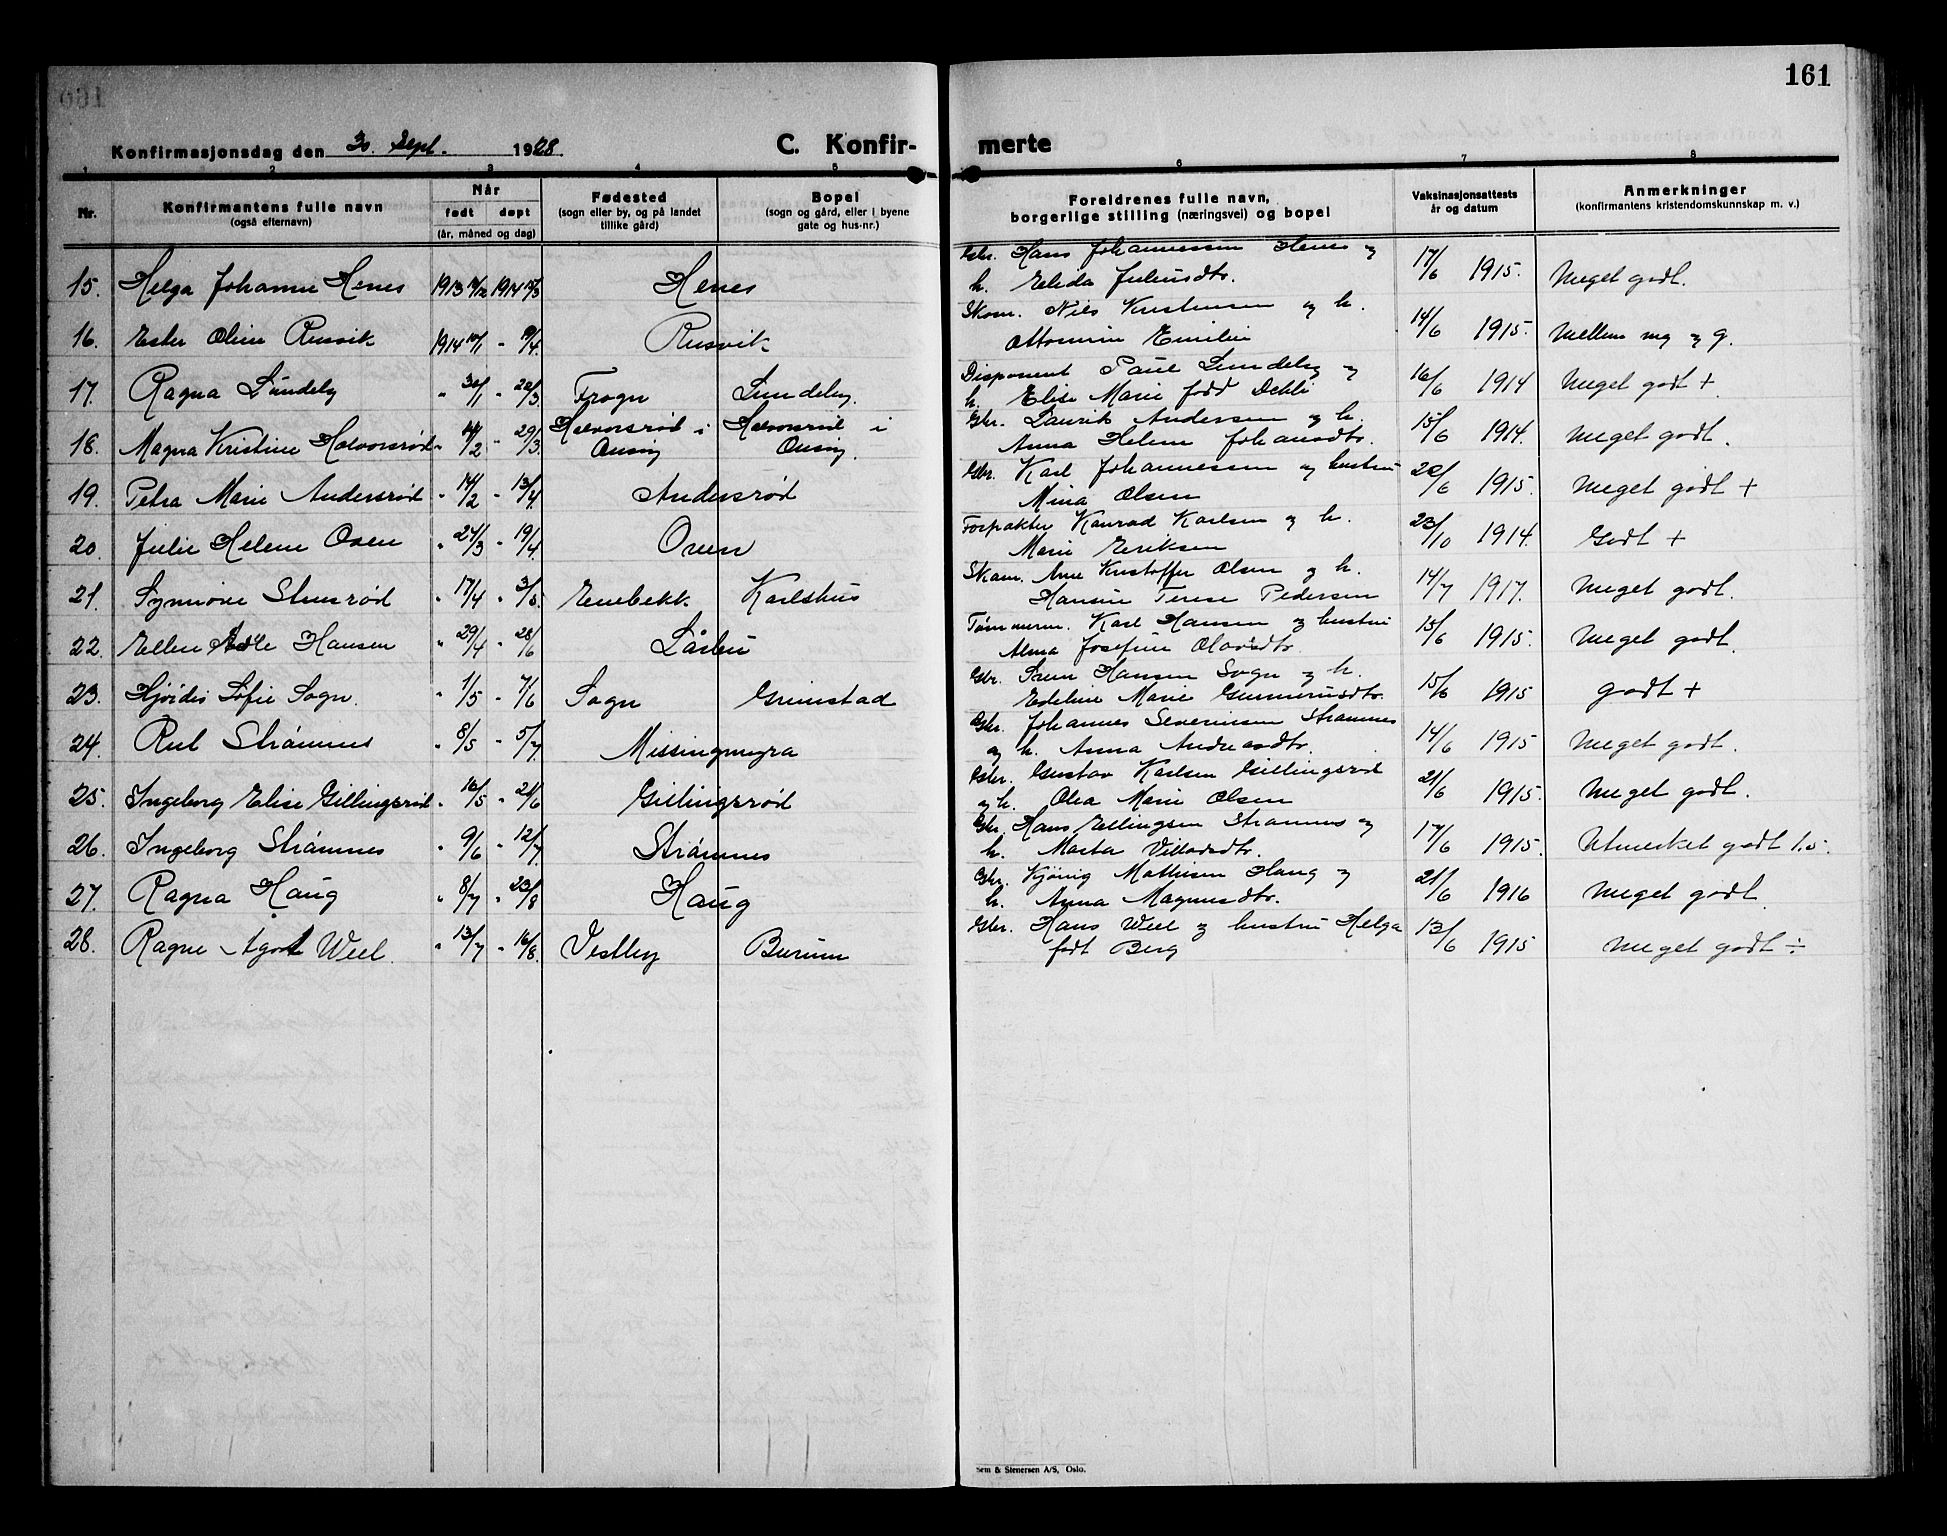 161
Konfirmasjonsdag den 30. Sept. 1928
C. Konfir-
merte
1 2 3 4 5 6 7 8
Nr.
Konfirmantens fulle navn
(også efternavn)
Når
født døpt
(år, måned og dag)
Fødested
(sogn eller by, og på landet
tillike gård)
Bopel
(sogn og gård, eller i byene
gate og hus-nr.)
Foreldrenes fulle navn,
borgerlige stilling (næringsvei) og bopel
Vaksinasjonsattests
år og datum
Anmerkninger
(konfirmantens kristendomskunnskap m. v.)
15. Helga Johanne Henes 1913 /12 1914 /3 Henes
Gbr. Hans Johannessen Henes og
h. Elida Juliusdtr. 17/6 1915. Meget godt.
16. Ester Oline Rusvik 1914 /1 - 9/4. Rusvik
Skom. Nils Kristensen og h.
Ottomine Emilie 14/6 1915. Mellem mg og g.
17. Ragna Lundeby " 30/1 - 20/3. Frogn Lundeby.
Disponent Paul Lundeby og
h. Elise Marie født Dehli 16/6 1914 Meget godt +
18. Magna Kristine Halvorsrød " 14/2 - 29/3. Halvorsrød i Halvorsrød i
Onsøy Onsøy.
Gbr. Laurits Andersen og h.
Anna Helene Johansdtr. 15/6 1914. Meget godt.
19. Petra Marie Andersrød " 14/2 - 13/4 Andersrød
Gbr. Karl Johannessen og hustru
Mina Olsen 20/6 1915. Meget godt +
20. Julie Helene Oven " 24/3 - 19/4 Oven
Forpakter Konrad Karlsen og h.
Marie Eriksen 23/10 1914. Godt +
21. Synnøve Stensrød " 17/4 - 3/5. Enebakk Karlshus
Skom. Arne Kristoffer Olsen og h.
Hansine Terese Pedersen 14/7 1917. Meget godt.
22. Ellen Adle Hansen " 29/4 - 28/6 Låsbu
Tømmerm. Karl Hansen og hustru
Alma Josefine Olavsdtr. 15/6 1915. Meget godt.
23. Hjørdis Sofie Sogn. " 1/5 - 7/6 Sogn Grimstad
Gbr. Hansen Sogn og h.
Edeline Marie Gunnerusdtr. 15/6 1915 godt +
24. Rut Strømnes " 8/5 - 5/7. Missingmyra
Gbr. Johannes Severinsen Strømnes
og h. Anna Andreasdtr. 14/6 1915 Meget godt.
25. Ingeborg Elise Gillingsrød " 16/5 - 21/6 Gillingsrød
Gbr. Gustav Karlsen Gillingsrød
og h. Olea Marie Olsen 21/6 1915. Meget godt.
26. Ingeborg Strømnes " 9/6 - 12/7 Strømnes
Gbr. Hans Ellingsen Strømnes og
h. Marta Villadsdtr. 17/6 1915. Utmerket godt 1.5.
27. Ragna Haug " 8/7 - 23/8 Haug
Gbr. Kjønig Mathisen Haug og
h. Anna Magnusdtr. 21/6 1916 Meget godt
28. Ragne Agot Weel. " 13/7 - 16/8. Vestby Burum
Gbr. Hans Weel og hustru Helga
født Berg 13/6 1915 Meget godt ÷
Sem & Stenersen A/S, Oslo.